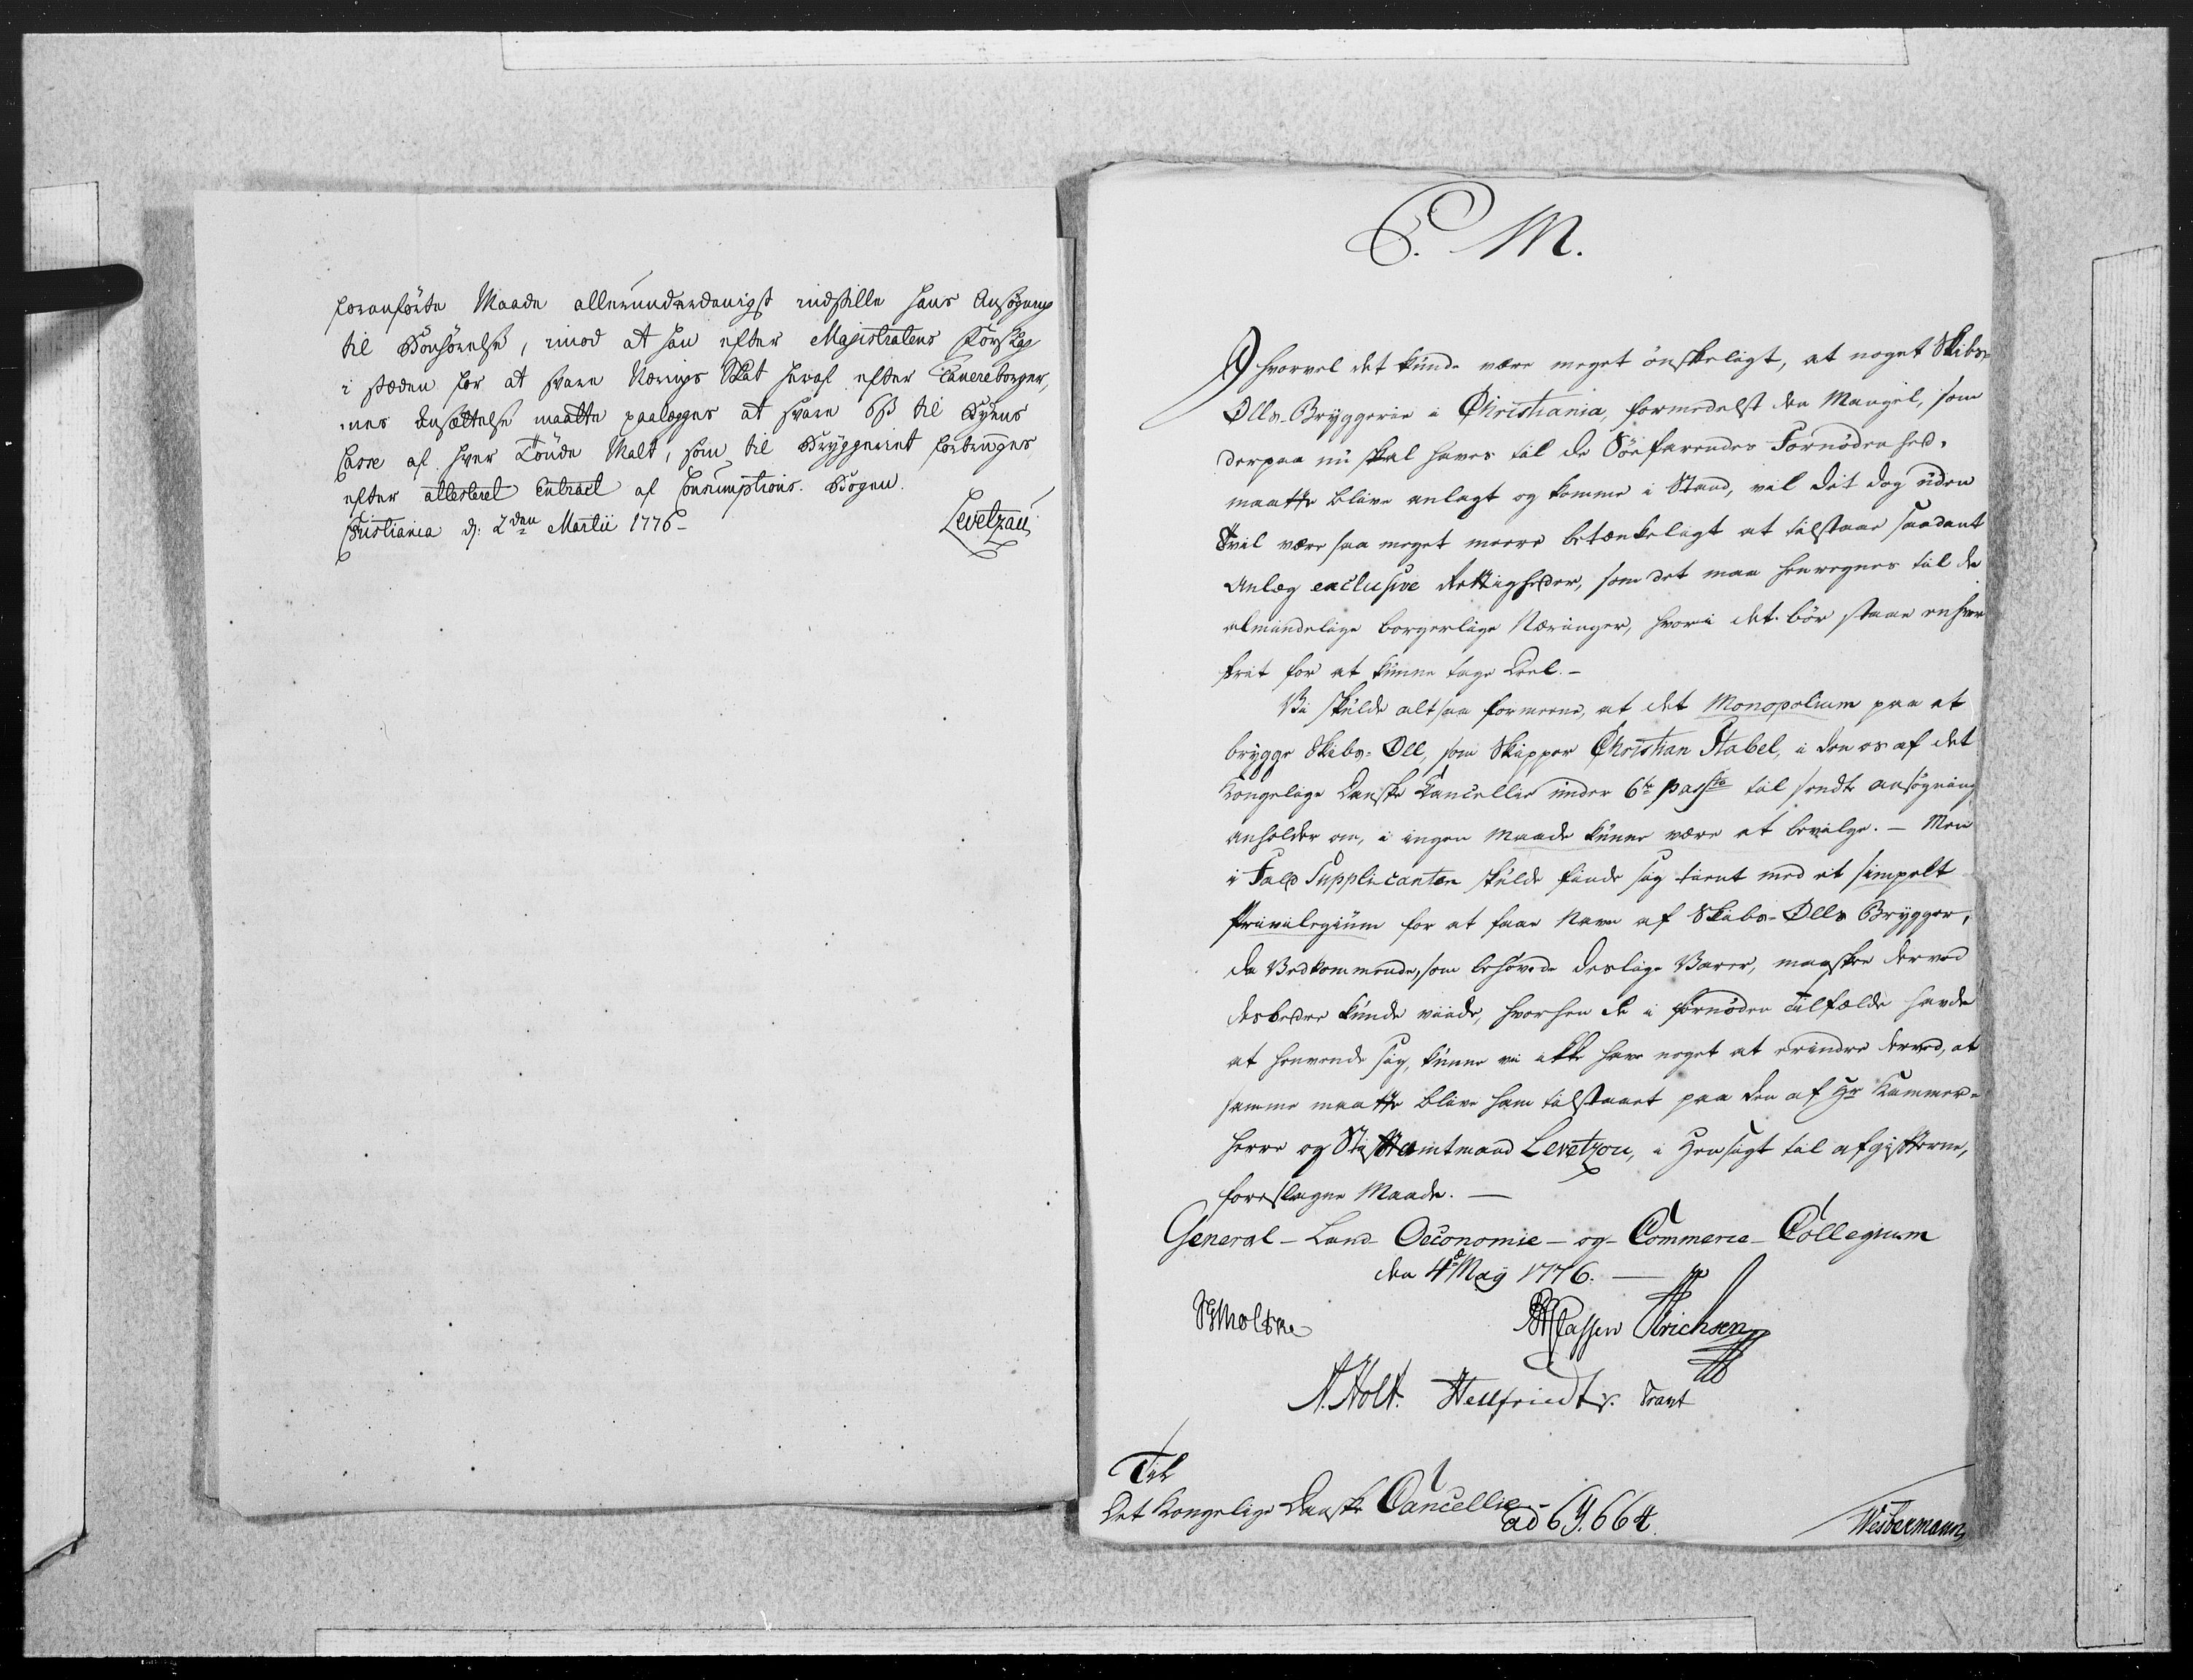 foranførte Maade allerunderdanigst indstille hans Ansøgning
til Bønhørelse, imod at han efter Magistratens Forslag
i stæden for at svare Nærings Skat heraf efter Tauereborger,
nes Ansættelse maatte paalægges at svare 6 ß til Byens
Casse af hver Tønde Malt, som til Bryggeriet forbruges
efter attesteret Extract af Consumptions-Bogen.
Christiania d: 2den Martii 1776-
Levetzau
P. M.
Ihvorvel det kunde være meget ønskeligt, at noget Skibs-
Ølls-Bryggerie i Christiania, formedelst den Mangel, som
derpaa nu skal haves til de Söefarendes Fornødenhed,
maatte blive anlagt og komme i Stand, vil det dog uden
Tvil være saa meget meere betænkeligt at tilstaae saadant
Anlæg exclusive Rettigheder, som det maa henregnes til de
almindelige borgerlige Næringer, hvori det bør staae enhver
frit for at kunne tage Deel.-
Vi skulde altsaa formeene, at det Monopolium paa at
brygge Skibs-Øll, som Skipper Christian Stabel, i den os af det
Kongelige Danske Cancellie under 6te passto tilsendte ansøgning
anholder om, i ingen Maade kunne være at bevilge. - Men
i Fald Supplicanten skulde finde sig tient med et simpelt
Privilegium for at faae Navn af Skibs-Ølls Brygger,
da Vedkommende, som behøvede deslige Varer, maaskee derved
desbedre kunde viide, hvorhen de i fornøden Tilfælde havde
at henvende sig, kunne vi ikke have noget at erindre derved, at
samme maatte blive ham tilstaaet paa den af Hr Kammer-
herre og Stiftamtmand Levetzou, i Hensigt til afgifterne,
foreslagne Maade. -
General-Land-Oeconomie-og-Commerce-Collegium
den 4de May 1776. -
Moltke Classen Erichsen
N. Holt. Hellfriedt Trant
Til
Det Kongelige Danske Cancellie.
ad 6 664.
Westermann